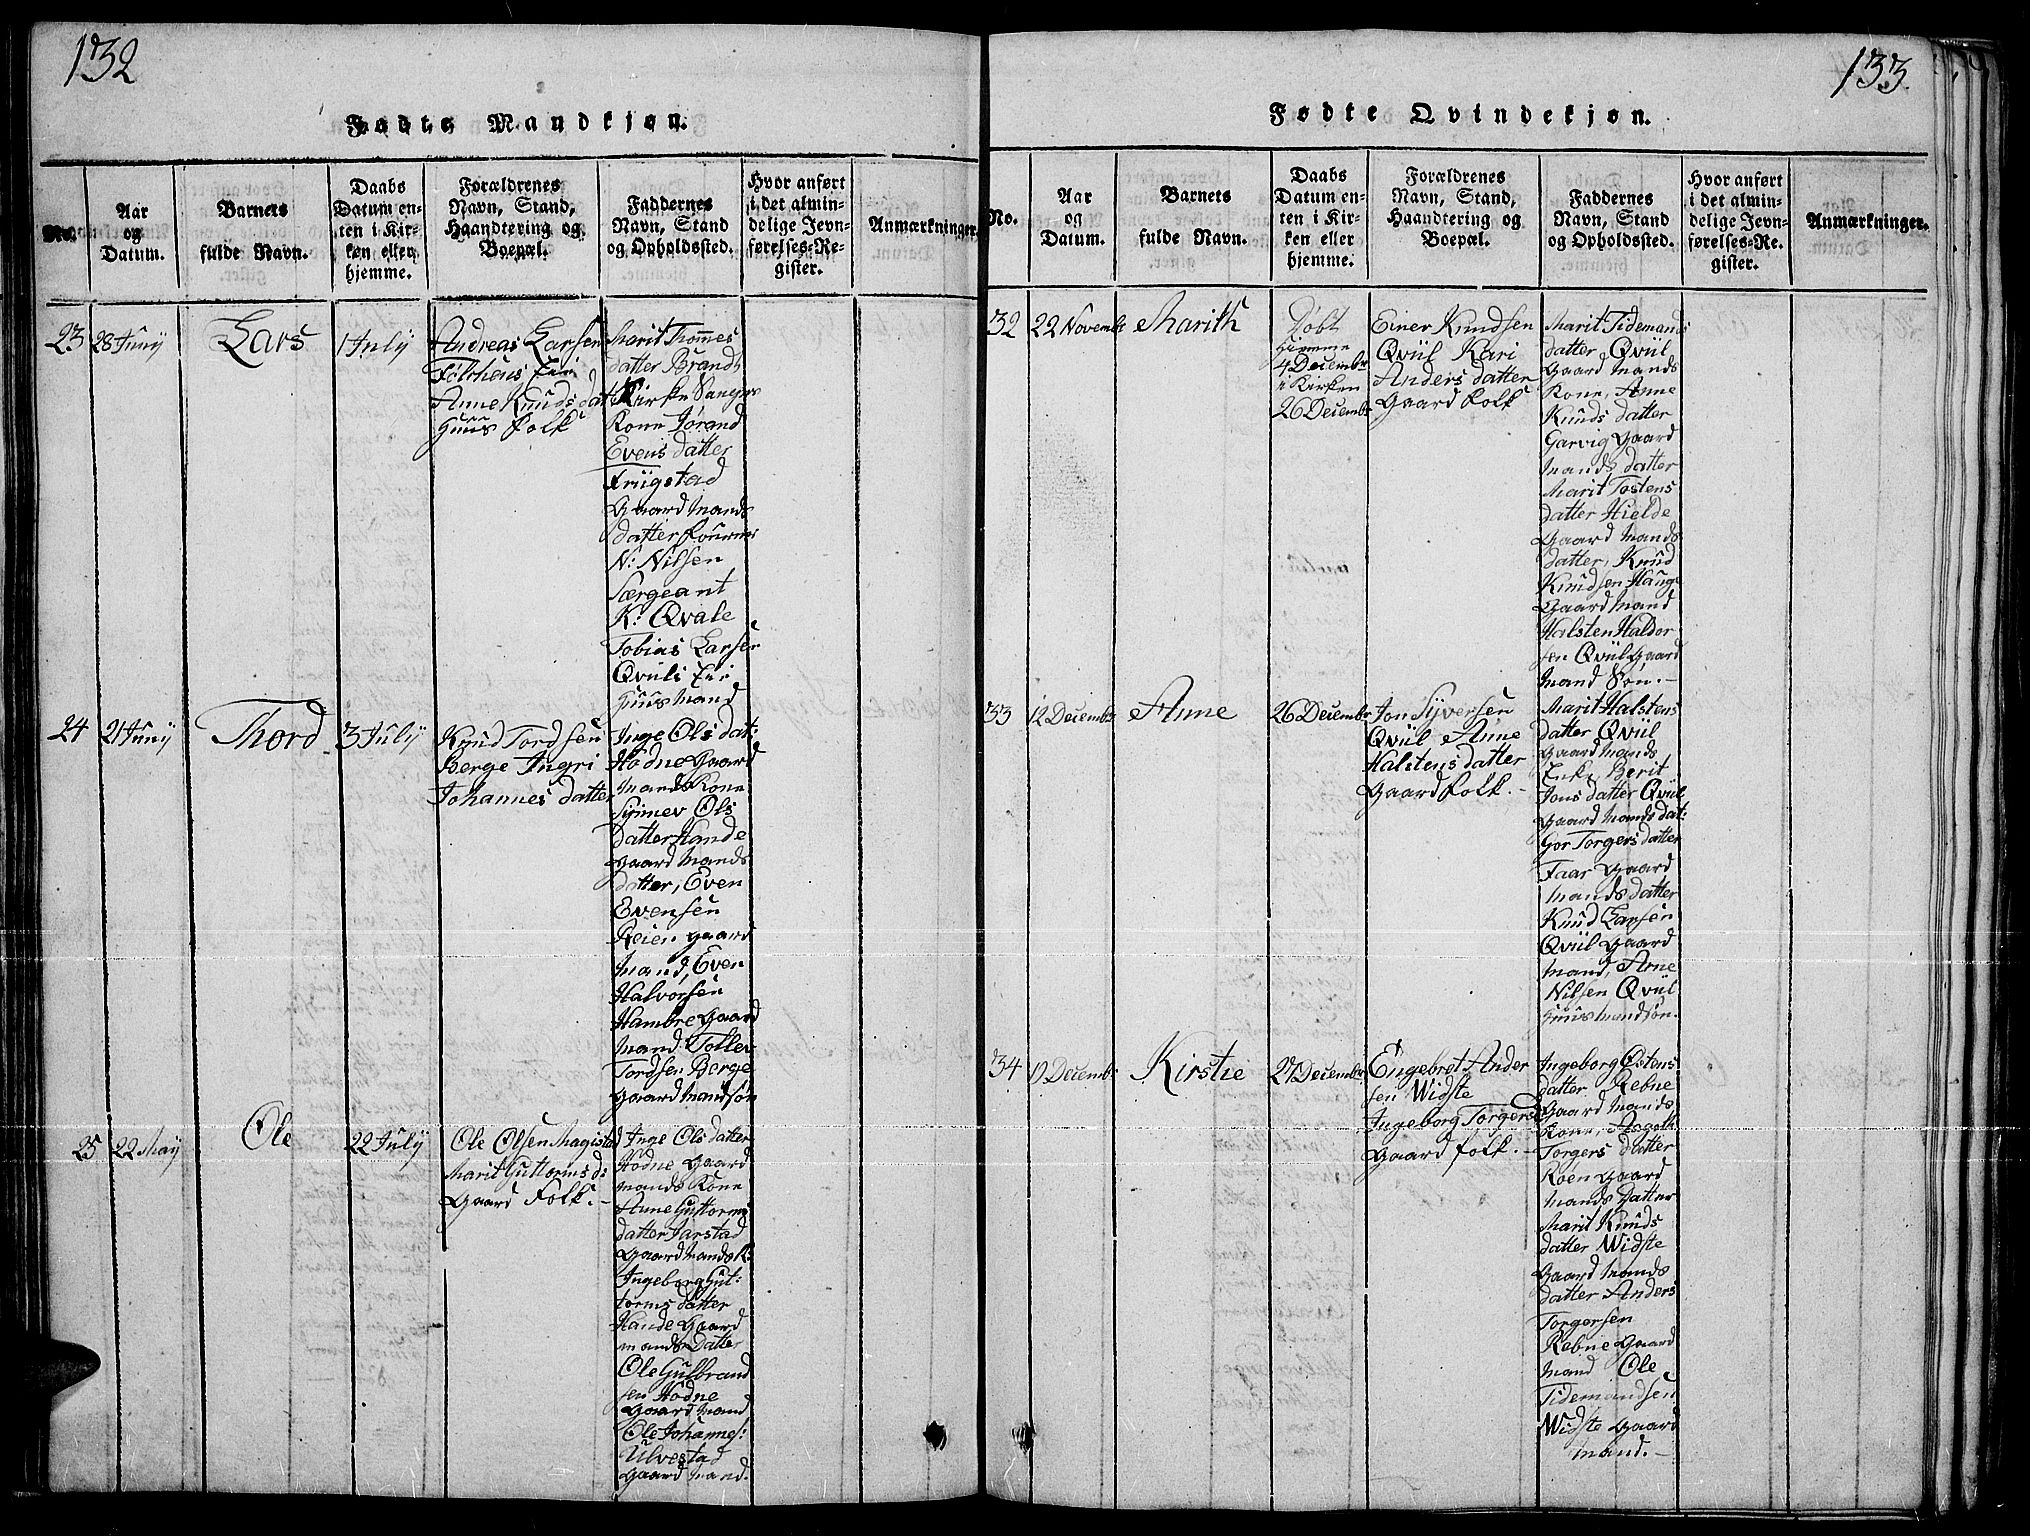 132
Fødte Mandkjøn.
No.
Aar
og
Datum.
Barnets
fulde Navn.
Daabs
Datum en-
ten i Kir-
ken eller
hjemme.
Forældrenes
Navn, Stand,
Haandtering og
Boepæl.
Faddernes
Navn, Stand
og Opholdssted.
Hvor anført
i det almin-
delige Jevn-
førelses-Re-
gister.
Anmærkninger.
23
28 Juny
Lars
1 July
Andreas Larsen
Anne Knudsdat
Huus Folk
Marit Thommes
datter Brandt
Kirke Sangers
Kone Jørand
Evens datter
Friigstad
Gaard Mands
datter
N: Nilsen
Særgeant
K: Qvale
Tobias Larsen
Qvüls Eie
Huusmand
24
21 Juny
Thord
3 July
Knud Tordsen
Berge Ingri
Johannes datter
Inge Ols dat:
Hødne Gaard
Mands Kone
Synnev Ols
datter Hande
Gaard Mands
datter, Even
Evensen
Reien gaard
Mand, Even
Halvorsen
Hambre Gaard
Mand Tollev
Tordsen Berge
Gaard Mandsøn
25
22 May
Ole
22 July
Ole Olsen Magistad
Marit Guttorms d:
Gaard Folk. -
Inge Ols datter
Hødne Gaard
Mands Kone
Anne Guttorms
datter Jarstad
Gaard Mands K:
Ingeborg Gut:
torms datter
Hande Gaard
mands Datter
Ole Gulbrand
sen Hødne
Gaard Mand
Ole Johannes:
Ulvestad
Gaard Mand.
133.
Fødte Qvindekjøn.
No.
Aar
og
Datum.
Barnets
fulde Navn.
Daabs
Datum en-
ten i Kir-
ken eller
hjemme.
Forældrenes
Navn, Stand,
Haandtering og
Boepæl.
Faddernes
Navn, Stand
og Opholdssted.
Hvor anført
i det almin-
delige Jevn-
førelses-Re-
gister.
Anmærkninger.
32
22 Novembr
Marith
Døbt
hiemme
4 Decembr
i Kirken
26 Decembr
Einer Knudsen
Qvül Kari
Anders datter
Gaard Folk
Marit Tidemands
datter Qvül
Gaard Mands
Kone, Anne
Knuds datter
Garvig Gaard
Mands datter
Marit Tostens
datter Hielde
Gaard Mands
datter, Knud
Knudsen Hauge
Gaard Mand
Halsten Haldor
sen Qvül Gaard
Mand Søn. -
33
12 Decembr
Anne
26 Decembr
Jon Syversen
Qvül Anne
Halstens datter
Gaard Folk. -
Marit Halstens
datter Qvül
Gaard Mands
Enke, Berit
Jons datter Qvül
Gaard Mands dat:
Gor Torgers datter
Faar Gaard
Mands datter
Knud Larsen
Qvül Gaard
Mand, Arne
Nilsen Qvül
Huus Mandsøn.
34
19 Decembr
Kirstie
27 Decembr
Engebret Ander
sen Widste
Ingeborg Torgersd
Gaard Folk. -
Ingeborg Østens
datter Rebne
Gaard Mands
Kone, Aagoth
Torgers datter
Røen Gaard
Mands Datter
Marit Knuds
datter Widste
Gaard Mands
datter Anders
Torgersen
Rebne Gaard
Mand Ole
Tidemandsen
Widste Gaard
Mand. -